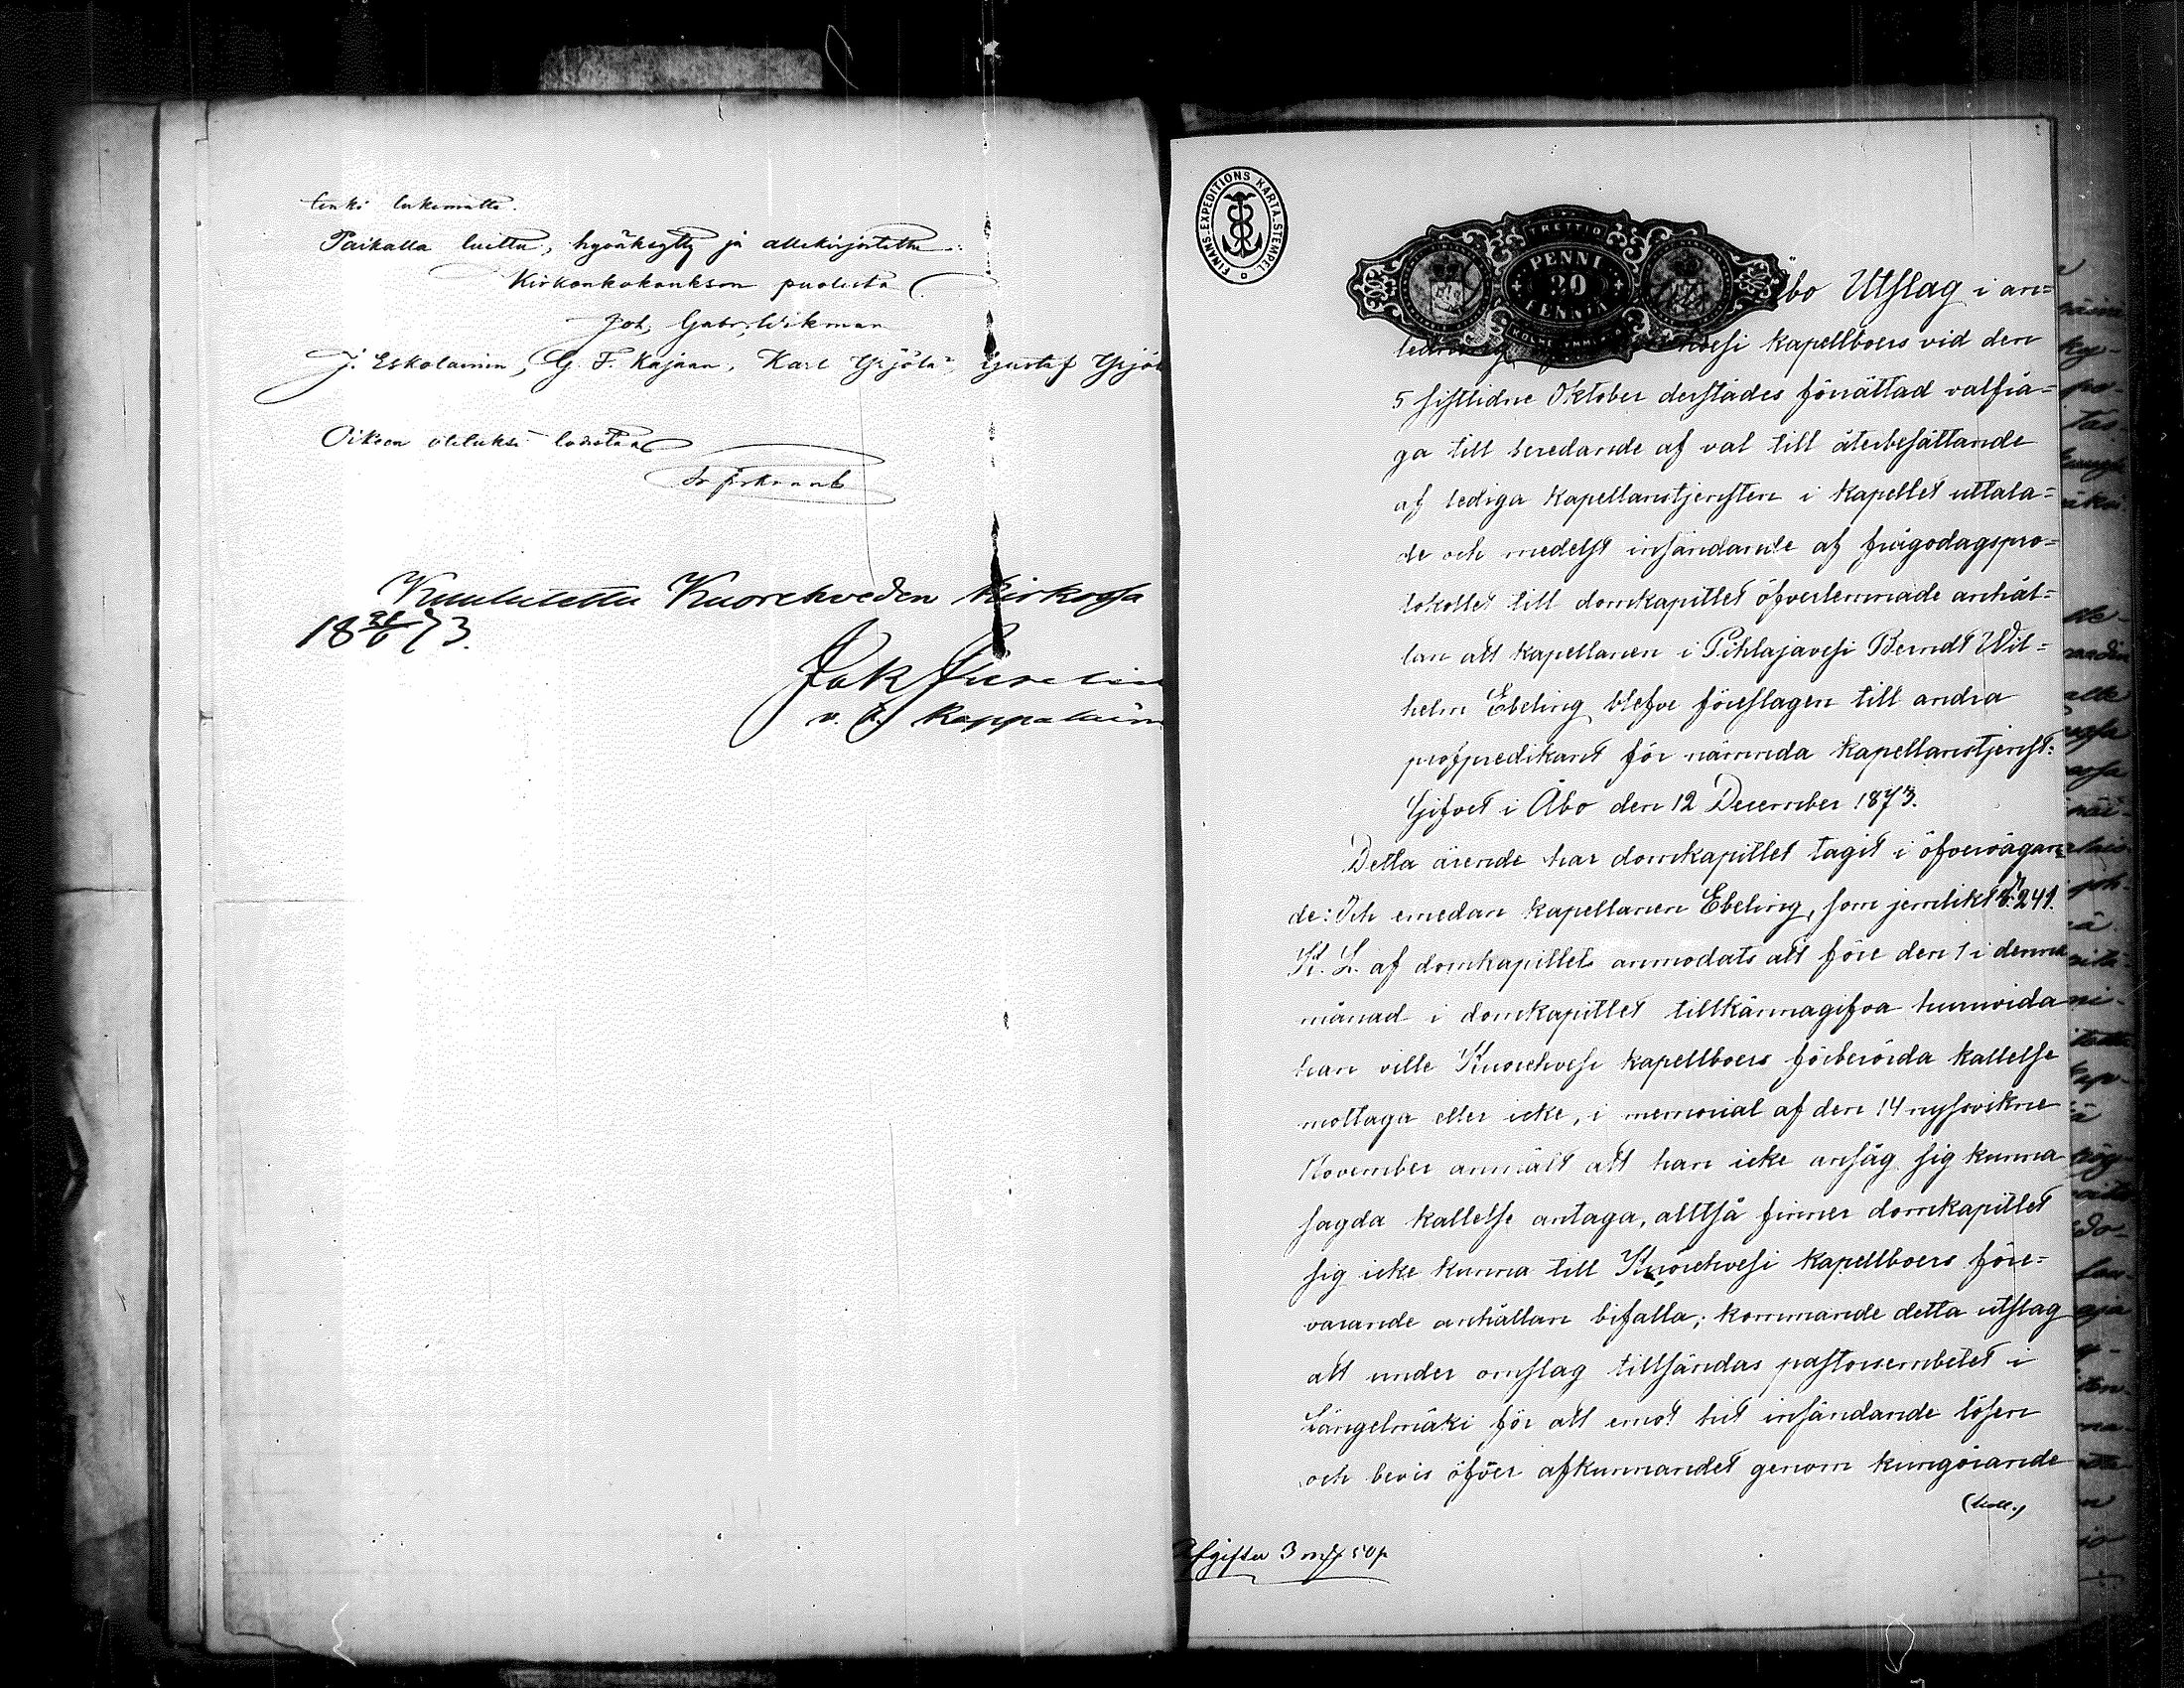 lenki lukematta.
Paikalla luettu, hyväksytty ja allekirjoitettu.
Kirkonkokouksen puolesta
Joh. Gabr. Wikman
J. Eskolainen, G. F. Kajaan, Karl Yrjölä, Gustaf Yrjöl
Oikean otteluksi todistaa
Kuulutettu Kuoreveden kirkossa
73.
Jak
v. t. Kappalaine
FINANS-EXPEDITIONS KARTA-STEMPEL
TRETTIO
PENNI
30
PENNIÄ
Åbo Utslag i an=
vesi kapellboers vid den
5 sistlidne Oktober derstädes förrättad valfrå=
ga till beredande af val till återbesättande
af lediga kapellanstjensten i kapellet uttala=
de och medelst insändande af frågodagspro=
tokollet till domkapitlet öfverlemnade anhål=
lan att kapellanen i Pihlajavesi Berndt Wil=
helm Ebeling blefve föreslagen till andra
profpredikant för nämnda kapellanstjenst:
Gifvet i Åbo den 12 December 1873.
Detta ärende har domkapitlet tagit i öfvervägan=
de: Och emedan kapellanen Ebeling, som jemlikt § 241.
K. L. af domkapitlet anmodats att före den 1 i denna
månad i domkapitlet tillkännagifva huruvida
han ville Kuorehvesi kapellboers förberörda kallelse
mottaga eller icke, i memorial af den 14 nyssvikne
November anmält att han icke ansåg sig kunna
sagda kallelse antaga, alltså finner domkapitlet
sig icke kunna till Kuorehvesi kapellboers före=
varande anhållan bifalla; kommande detta utslag
att under omslag tillsändas pastorsembetet i
Längelmäki för att emot hit insändande lösen
och bevis öfver afkunnandet genom kungörande
Afgifter 3 mk 50 p